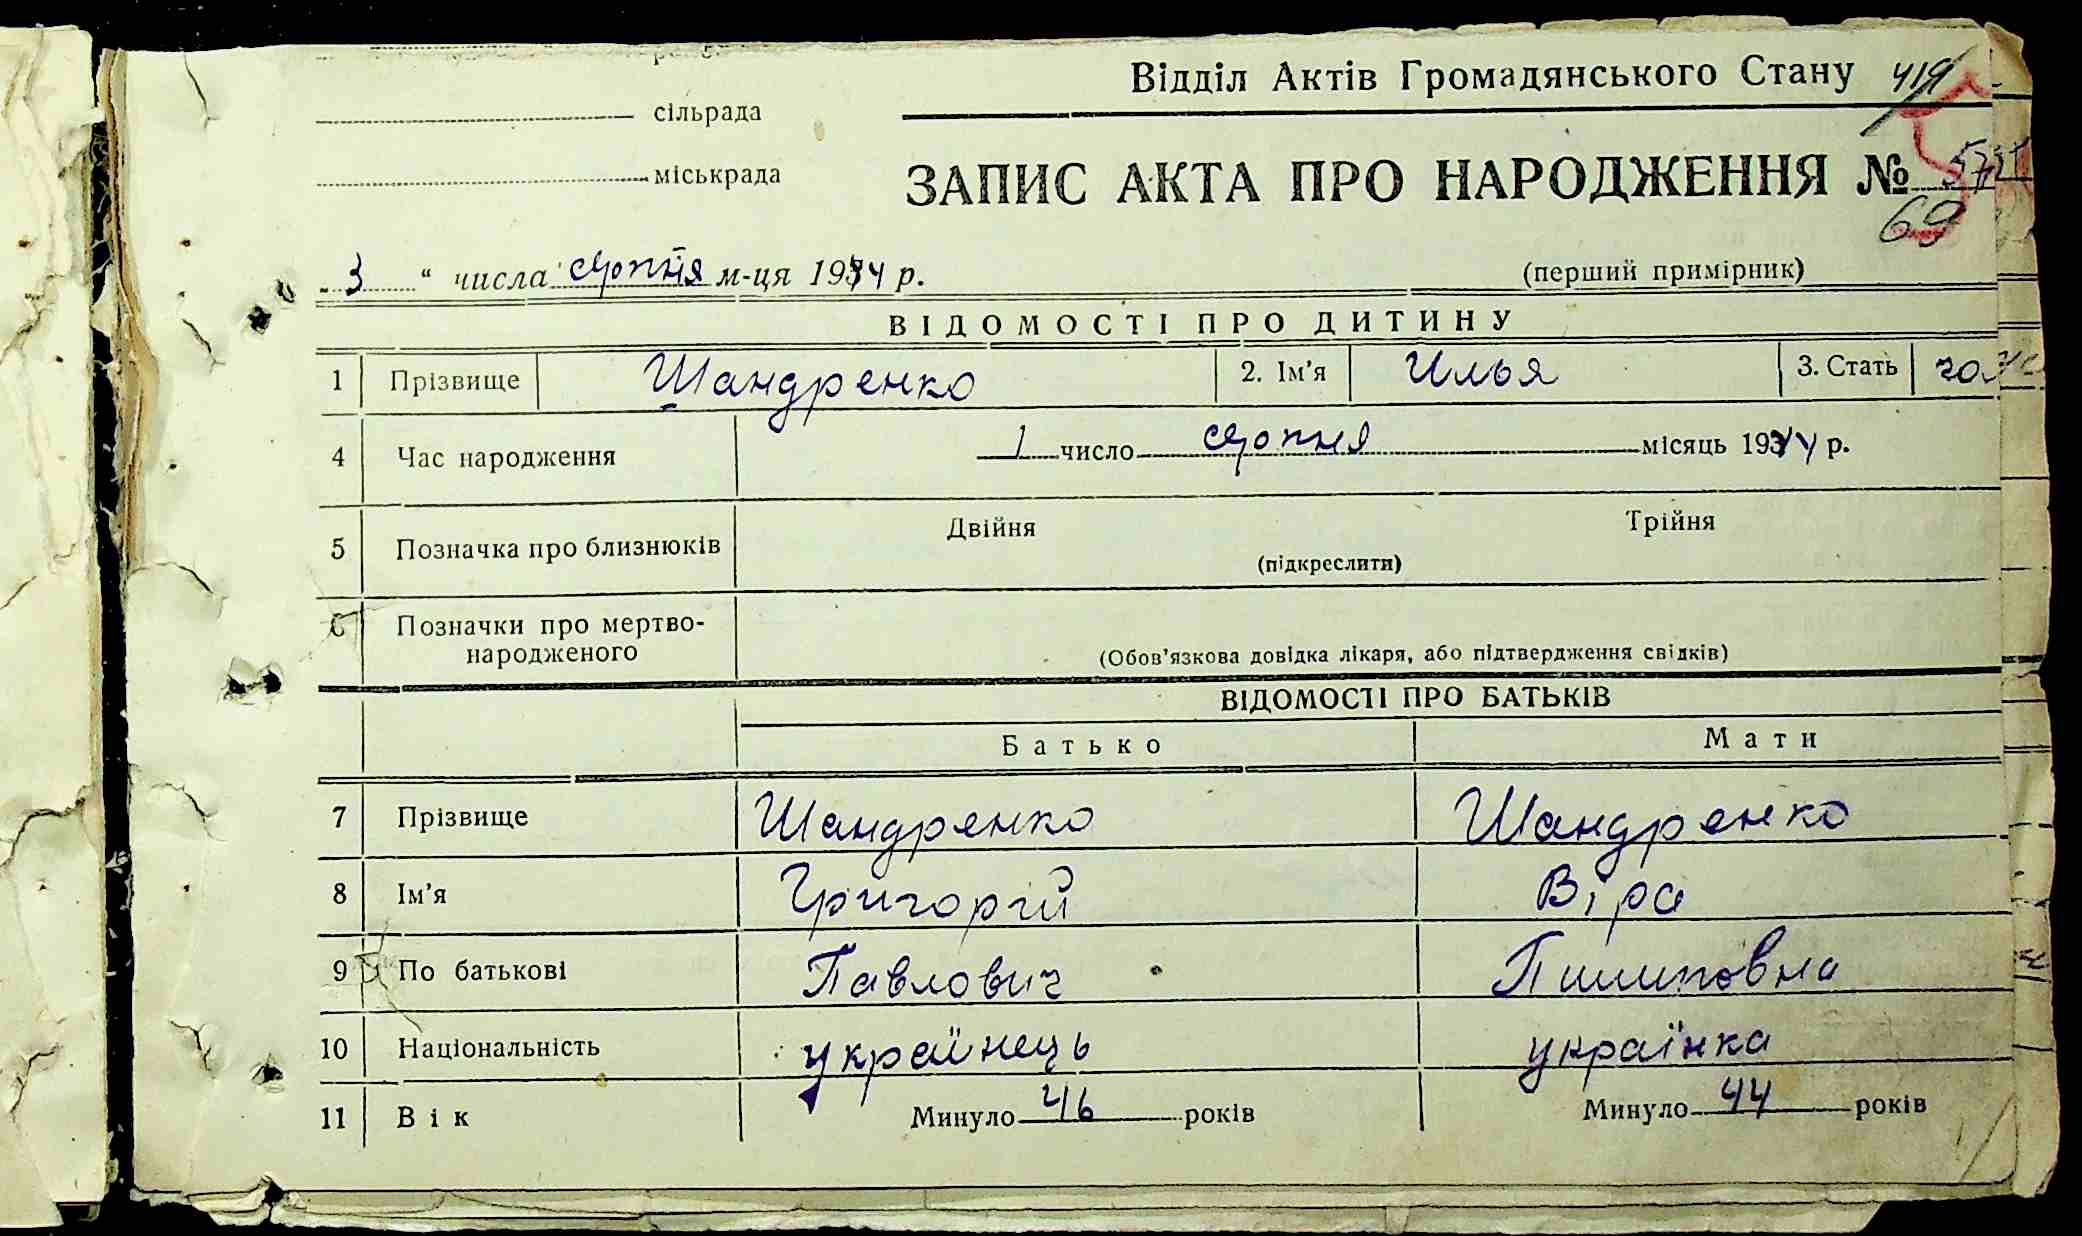 Відділ Актів Громадянського Стану 419
сільрада
міськрада
ЗАПИС АКТА ПРО НАРОДЖЕННЯ №
69
3 " числа серпня м-ця 1944 р.
(перший примірник)
ВІДОМОСТІ ПРО ДИТИНУ
1 Прізвище Шандренко 2. Ім'я Илья 3. Стать
4 Час народження 1 число серпня місяць 1944 р.
5 Позначка про близнюків Двійня Трійня
(підкреслити)
6 Позначки про мертво-
народженого
(Обов'язкова довідка лікаря, або підтвердження свідків)
ВІДОМОСТІ ПРО БАТЬКІВ
Батько Мати
7 Прізвище Шандренко Шандренко
8 Ім'я Григорій Віра
9 По батькові Павлович Пилиповна
10 Національність українець українка
11 Вік Минуло 46 років Минуло 44 років